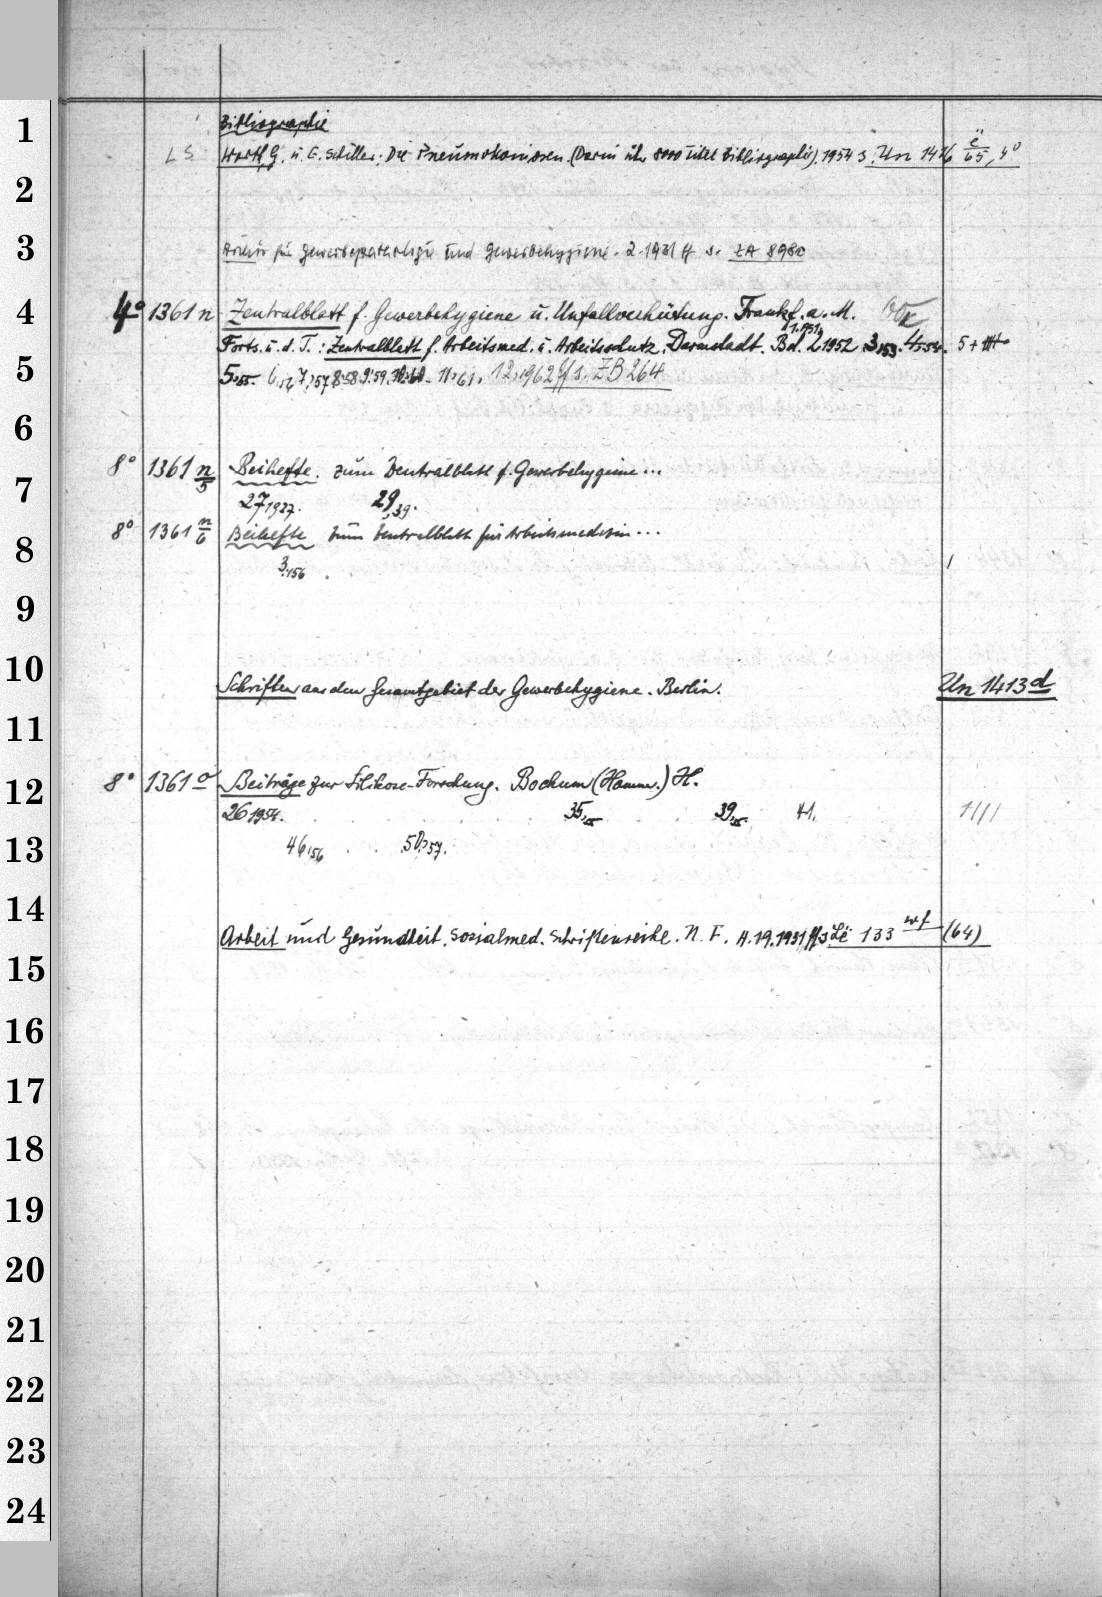 1
Bibliographie
LS Worth, G. u. E. Schiller: Die Pneumokoniosen. (Darin üb. 8000 Titel Bibliographie). 1954 s. Un 1476 ë/65, 4°
2
3
Archiv für Gewerbepathologie und Gewerbehygiene. 2.1931 ff s. ZA 8980
4
4° 1361 n Zentralblatt f. Gewerbehygiene u. Unfallverhütung. Frankf. a. M.
1.1951.
Forts. u. d. T.: Zentralblatt f. Arbeitsmed. u. Arbeitsschutz. Darmstadt. Bd. 2.1952. 3,53. 4,54. 5 +
5
5,55. 6,56. 7,57. 8,58. 9,59. 10,60. 11,61. 12,1962 ff s. ZB 264
6
7
8° 1361 n/5 Beihefte zum Zentralblatt f. Gewerbehygiene...
27,1937. 29,39.
8
8° 1361 n/6 Beihefte zum Zentralblatt für Arbeitsmedizin...
3,156
9
10
Schriften aus dem Gesamtgebiet der Gewerbehygiene. Berlin. Un 1413 d
11
12
8° 1361 o Beiträge zur Silikose-Forschung. Bochum (Hamm.) H.
26 1954. 35,55 39,55. 41.
13
46,56 50,57.
14
Arbeit und Gesundheit. Sozialmed. Schriftenreihe. N. F. H. 19.1931 ff s Lë 133 wf (64)
15
16
17
18
19
20
21
22
23
24